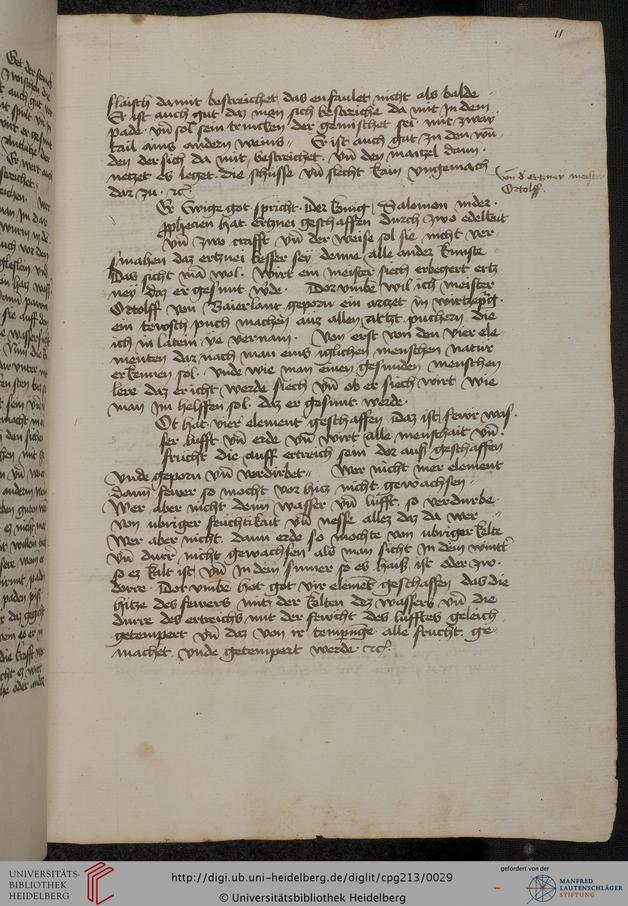 11
flaisch da mit bestreichet das enfaulet nicht als balde
Er ist auch gut daz man sich bestreiche da mit In dem
pade vnd sol sein trincken der gemischet sei mit zway
tail ains andern weins Er ist auch gut zu den wun
den der sich da mit bestreichet vnd den maizel darin
netzet es leget die schüsse vnd slecht kain vngemach
dar zu · etc
von d ertzney meister
Ortolff
Er Ewige got spricht Der konig Salomon In der
prophecien hat Ertznei geschaffen durch zwo edelkeit
vnd zwo crafft vnd der weise sol sie nicht ver
smahen daz ertznei besser sey denne alle ander kunste
Das sicht man wol · wirt ein meister siech er begert ertz
ney daz er gesunt werde · Dor vmbe wil ich meister
Ortolff von Baierlant geporn ein arczet in wirtzpurg
ein tewsch puch machen auz allen artzt puchern die
ich in latein ye vernam · Von erst von den vier ele
menten dar nach man eins iglichen menschen natur
erkennen sol · vnde wie man einen gesunden menschen
lere daz er icht werde siech vnd ob er siech wirt wie
man Im helffen sol daz er gesunt werde ·
Ot hat vier element geschaffen Daz ist fewr was
ser lufft vnd erde vnd wirt alle menschait vnd
frucht die auff ertrich sein dor auß geschaffen
vnde geporn vnd verdirbet wer nicht mer element
dann fewer so mocht vor hitz nicht gewachsen
Wer aber nicht denn wasser vnd lufft so verdurbe
von vbriger feuchtikait vnd nesse allez daz da wer
Wer aber nicht dann erde so mochte von vbriger kelte
vnd durr nicht gewachsen als man sicht In dem winter
so ez kalt ist vnd In dem sumer so es haiß ist oder zvo
dorre · Dor vmbe hot got vir element geschaffen das die
hitze des fewers mit der kelten dez wassers vnd die
durre des ertreichs mit der fewcht des lufftes geleich
getempert vnd daz von ir temperunge alle frucht ge
machet vnde getempert werde · etc
UNIVERSITÄTS-
BIBLIOTHEK
HEIDELBERG
http://digi.ub.uni-heidelberg.de/diglit/cpg213/0029
© Universitätsbibliothek Heidelberg
gefördert von der
MANFRED
LAUTENSCHLÄGER
STIFTUNG